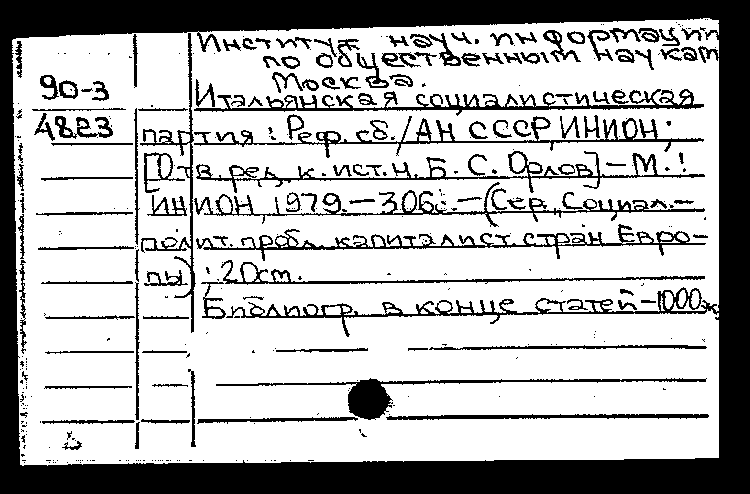 Институт науч. информации
по общественным наукам
Москва.
90-3
Итальянская социалистическая
4823
партия : Реф. сб./АН СССР, ИНИОН;
[Отв. ред. к. ист. н. Б. С. Орлов]. – М. :
ИНИОН, 1979. – 306с. – (Сер. „Социал.–
полит. пробл. капиталист. стран Евро–
пы) ; 20 ст.
Библиогр. в конце статей – 1000